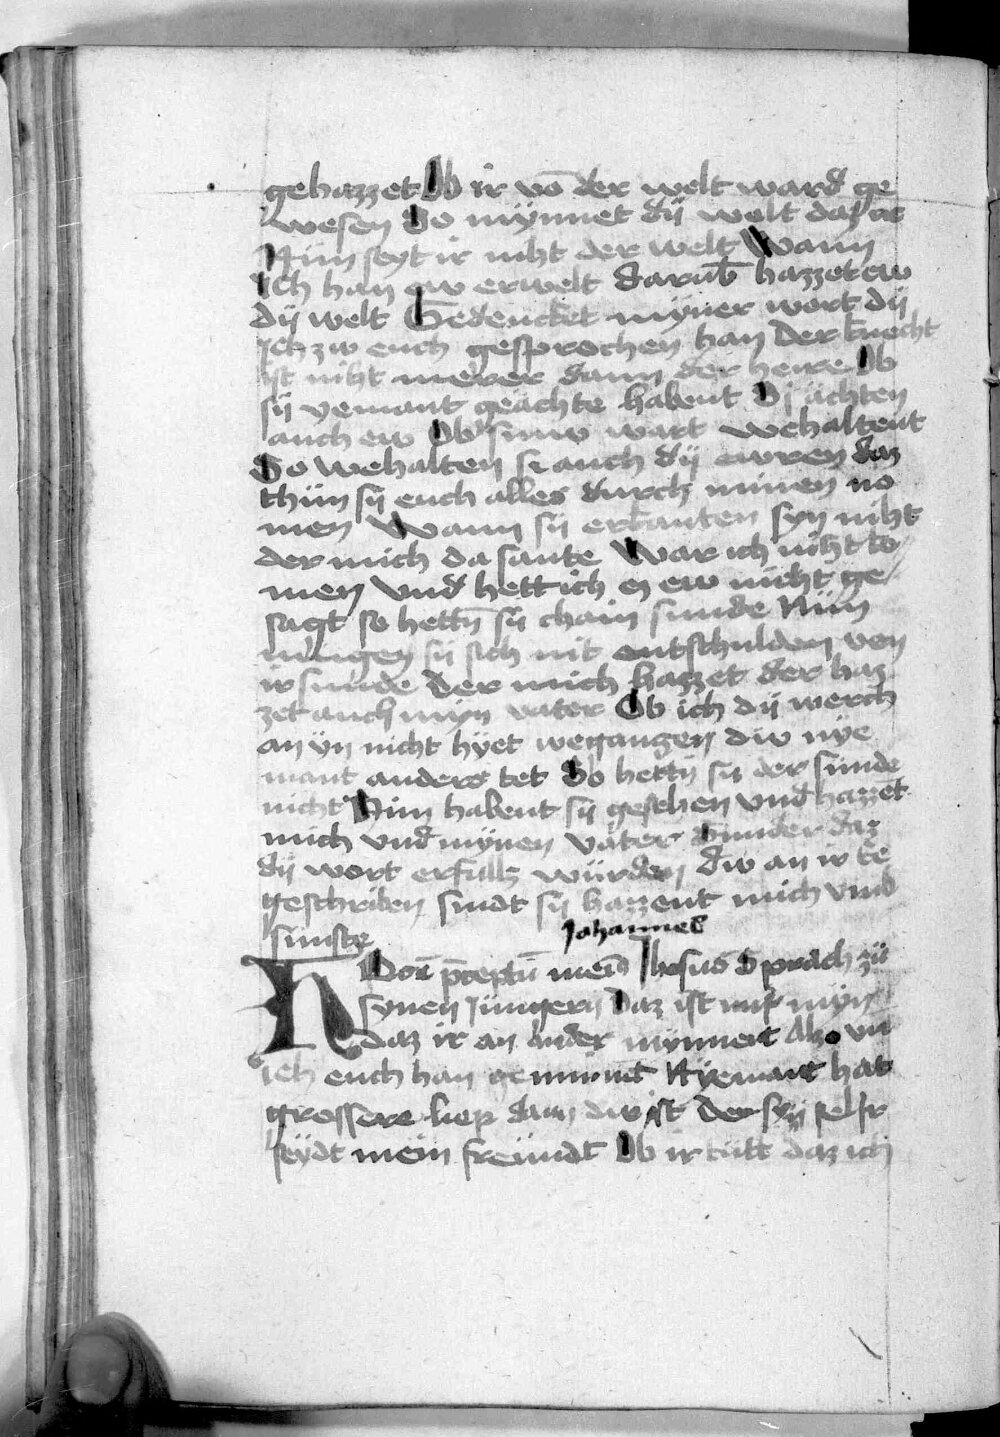 gehazzet Ob ir vō der welt ward ge
wesen So mynnet dÿ welt daz ir
Nün seyt ir niht der welt Wann
Ich han ew erwelt darūb hazzet ew
dÿ welt Gedencket myner wort dÿ
Ich zw euch gesprochen han Der knecht
ist niht merer dann der herre Ob
sÿ yemant geächte habent Si ächten
auch ew Ob sÿ mynw wart wehaltent
So wehalten si auch dÿ ewren daz
thün sÿ euch alles durch minen no
men Wann sÿ erkanten syn niht
der mich da sante War ich niht ko
men Vnd hett ich ez ew nicht ge
sagt so hettn̄ sÿ chain sunde Nün
mügen sÿ sich nit entschulden von
ir sunde Der mich hazzet der haz
zet auch myn vater Ob ich dÿ werch
an yn nicht hyet wegangen diw nye
mant anders tet So hettn̄ sÿ der sünde
nicht Nün habent sÿ gesehen Vnd hazzēt
mich vnd mynen väter Sunder daz
dÿ wort erfullt würden diw an ir ee
geschriben sindt sÿ hazzent mich vmb
sunste
Johannes
Hoc est p̄ceptū meū Jhesus Sprach zü
synen Jüngern Daz ist mÿ myn
daz ir an ander mynnent Alzo vn
ich euch han gemint Nyemant hat
grossere liep dann diw ist Der syn sel fr
seydt mein freündt Ob ir tütt daz ich